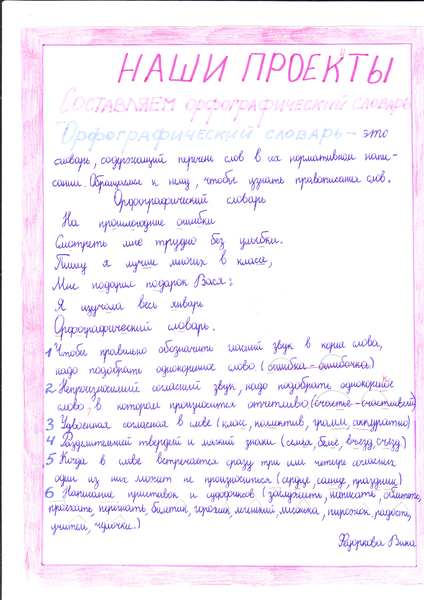 НАШИ ПРОЕКТЫ
Составляем орфографический словарь
Орфографический словарь – это
словарь, содержащий перечень слов в их нормативном напи-
сании. Обращаемся к нему, чтобы узнать правописания слов.
Орфографический словарь
На прошлогодние ошибки
Смотреть мне трудно без улыбки.
Пишу я лучше многих в классе,
Мне подарил подарок Вася:
Я изучала весь январь
Орфографический словарь.
1 Чтобы правильно обозначить гласный звук в корне слова,
надо подобрать однокоренное слово. (ошибка - ошибочка)
2 Непроизносимый согласный звук, надо подобрать однокоренное
слово, в котором произносится отчетливо (счастье - счастливый)
3 Удвоенная согласная в слове (класс, коллектив, грамм, аккуратно)
4 Разделительный твердый и мягкий знаки (семья, бельё, въезд, съезд)
5 Когда в слове встречается сразу три или четыре согласных
один из них может не произноситься (сердце, солнце, праздник)
6 Написание приставок и суффиксов (заслужить, написать, облететь,
проехать, перегнать, билетик, горошек, мишка, пирожок, радость,
учитель, чулочки.)
Вика